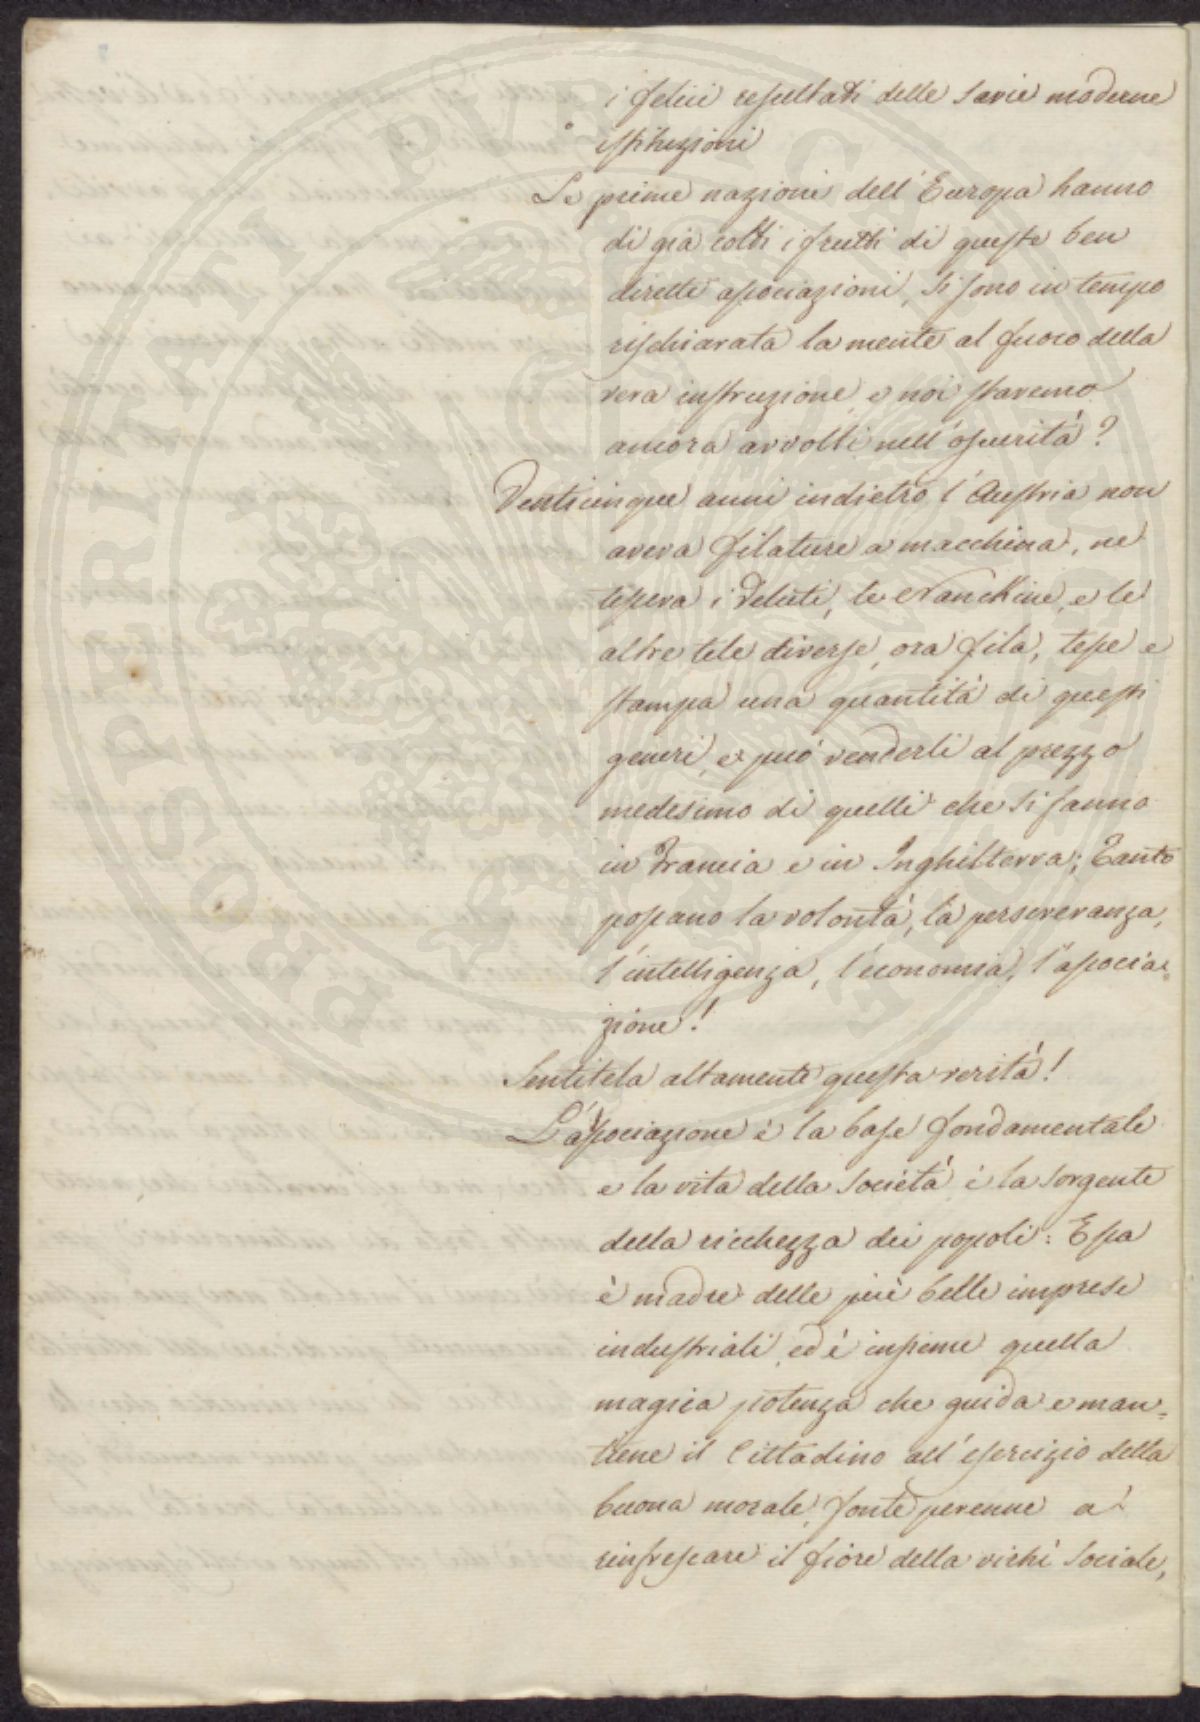 i felici resultati delle savie moderne
istituzioni
Le prime nazioni dell'Europa hanno
di già colti i frutti di queste ben
dirette associazioni, si sono in tempo
rischiarata la mente al fuoco della
vera instruzione, e noi staremo
ancora avvolti nell'oscurità?
Venticinque anni indietro l'Austria non
aveva filature a macchina, ne
tesseva i Veluti, le Nanckine, e le
altre tele diverse, ora fila, tesse e
stampa una quantità di questi
generi, e può venderli al prezzo
medesimo di quelli che si fanno
in Francia e in Inghilterra; Tanto
possano la volontà, la perseveranza,
l'intelligenza, l'economia, l'associa=
zione!
Sentitela altamente questa verità!
L'associazione è la base fondamentale
e la vita della Società, è la sorgente
della ricchezza dei popoli: Essa
è madre delle più belle imprese
industriali, ed è insieme quella
magica potenza che guida e man=
tiene il Cittadino all'esercizio della
buona morale, fonte perenne a
rinfrescare il fiore della virtù sociale,
PROSPERITATI PVBLICAE